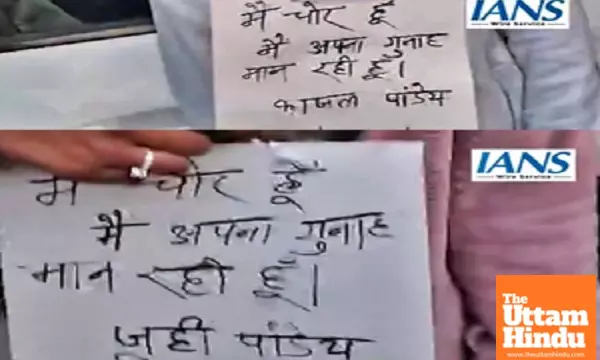 मै चोर हूँ
मै अपना गुनाह
मान रही हूँ।
काजल पांडेय
IANS
Wire Service
म चोर हूँ
मै अपना गुनाह
मान रही हूँ।
जूही पांडेय
IANS
Wire Service
The
Uttam
Hindu
www.theuttamhindu.com